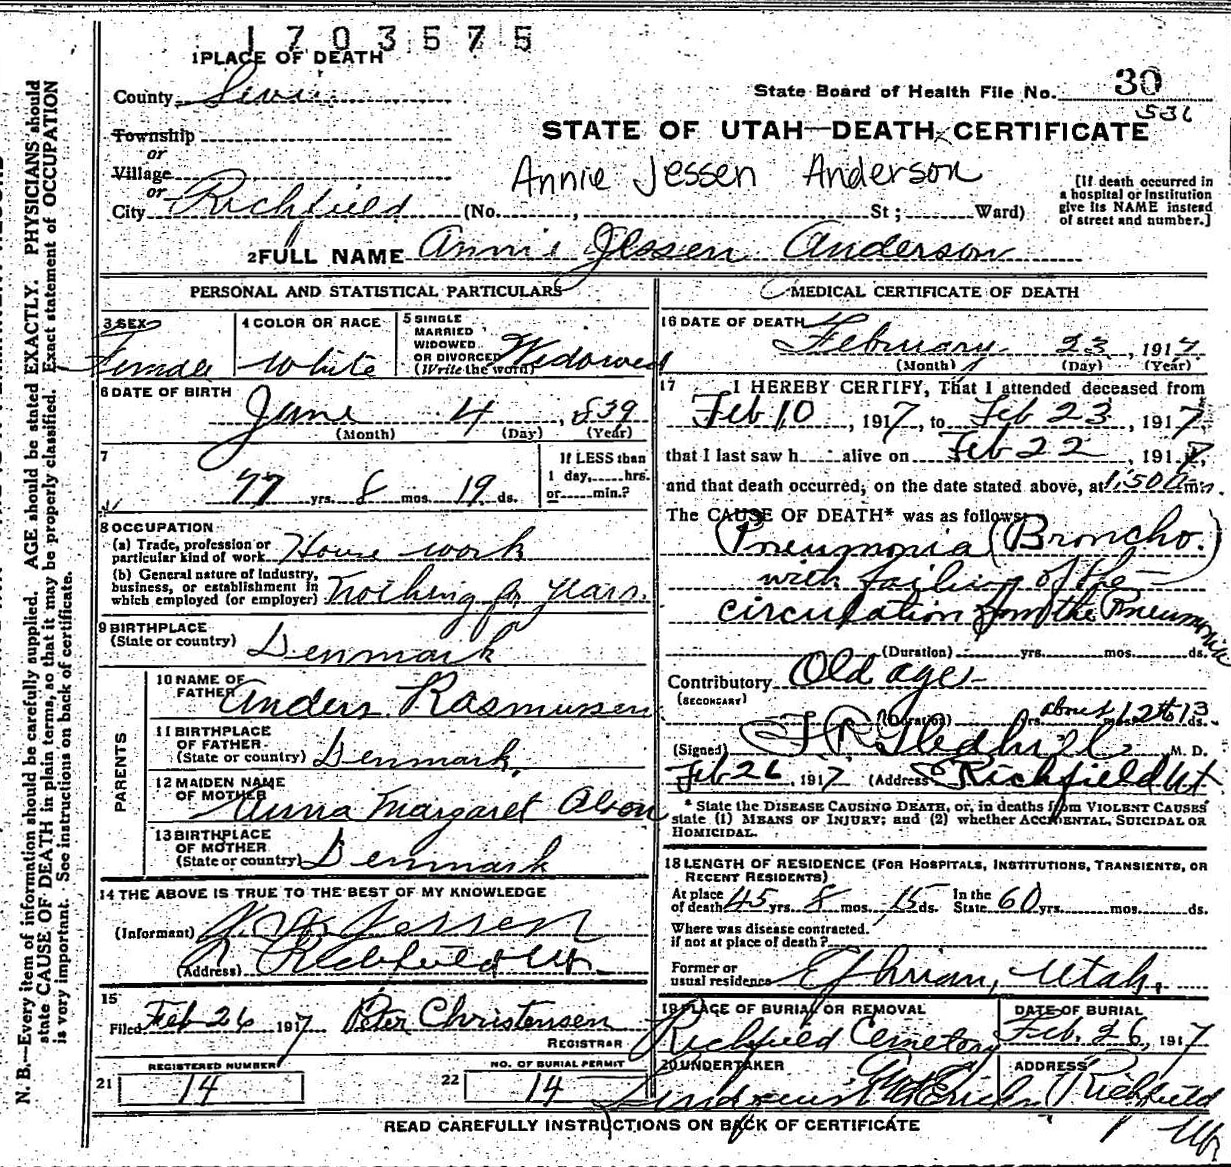 1703575
1 PLACE OF DEATH
County Sevier
State Board of Health File No. 30
536
Township
or
Village
or
City Richfield (No. , St ; Ward)
STATE OF UTAH—DEATH CERTIFICATE
Annie Jessen Anderson
[If death occurred in
a hospital or institution
give its NAME instead
of street and number.]
2 FULL NAME Annie Jessen Anderson
PERSONAL AND STATISTICAL PARTICULARS
3 SEX
Female
4 COLOR OR RACE
White
5 SINGLE
MARRIED
WIDOWED
OR DIVORCED
(Write the word) Widowed
6 DATE OF BIRTH
June 4, 1839
(Month) (Day) (Year)
7
77 yrs. 8 mos. 19 ds.
If LESS than
1 day, hrs.
or min.?
8 OCCUPATION
(a) Trade, profession or
particular kind of work House work
(b) General nature of Industry,
business, or establishment in
which employed (or employer) Nothing for years.
9 BIRTHPLACE
(State or country) Denmark
PARENTS
10 NAME OF
FATHER Anders Rasmussen
11 BIRTHPLACE
OF FATHER
(State or country) Denmark,
12 MAIDEN NAME
OF MOTHER Anna Margaret
13 BIRTHPLACE
OF MOTHER
(State or country) Denmark
14 THE ABOVE IS TRUE TO THE BEST OF MY KNOWLEDGE
(Informant) Jessen
(Address) Richfield Ut.
15
Filed Feb 26 1917 Peter Christensen
REGISTRAR
REGISTERED NUMBER
21 14
NO. OF BURIAL PERMIT
22 14
MEDICAL CERTIFICATE OF DEATH
16 DATE OF DEATH
February 23, 1917
(Month) (Day) (Year)
17 I HEREBY CERTIFY, That I attended deceased from
Feb 10, 1917, to Feb 23, 1917,
that I last saw h alive on Feb 22, 1917,
and that death occurred, on the date stated above, at 1:50 a m.
The CAUSE OF DEATH* was as follows:
Pneumonia (Broncho.)
with failing of the
circulation from the Pneumonia
(Duration) yrs. mos. ds.
Contributory Old age
(SECONDARY)
(Duration) yrs. about mos. 12 to 13 ds.
(Signed) Gledhill M. D.
Feb 26, 1917 (Address) Richfield Ut
* State the DISEASE CAUSING DEATH, or, in deaths from VIOLENT CAUSES
state (1) MEANS OF INJURY; and (2) whether ACCIDENTAL, SUICIDAL OR
HOMICIDAL.
18 LENGTH OF RESIDENCE (FOR HOSPITALS, INSTITUTIONS, TRANSIENTS, OR
RECENT RESIDENTS)
At place
of death 45 yrs. 8 mos. 15 ds. In the
State 60 yrs. mos. ds.
Where was disease contracted.
if not at place of death?
Former or
usual residence Ephriam, Utah.
19 PLACE OF BURIAL OR REMOVAL
Richfield Cemetery
DATE OF BURIAL
Feb. 26, 1917
20 UNDERTAKER
ADDRESS
Richfield
Ut
READ CAREFULLY INSTRUCTIONS ON BACK OF CERTIFICATE
N. B.—Every item of information should be carefully supplied. AGE should be stated EXACTLY. PHYSICIANS should
state CAUSE OF DEATH in plain terms, so that it may be properly classified. Exact statement of OCCUPATION
is very important. See instructions on back of certificate.